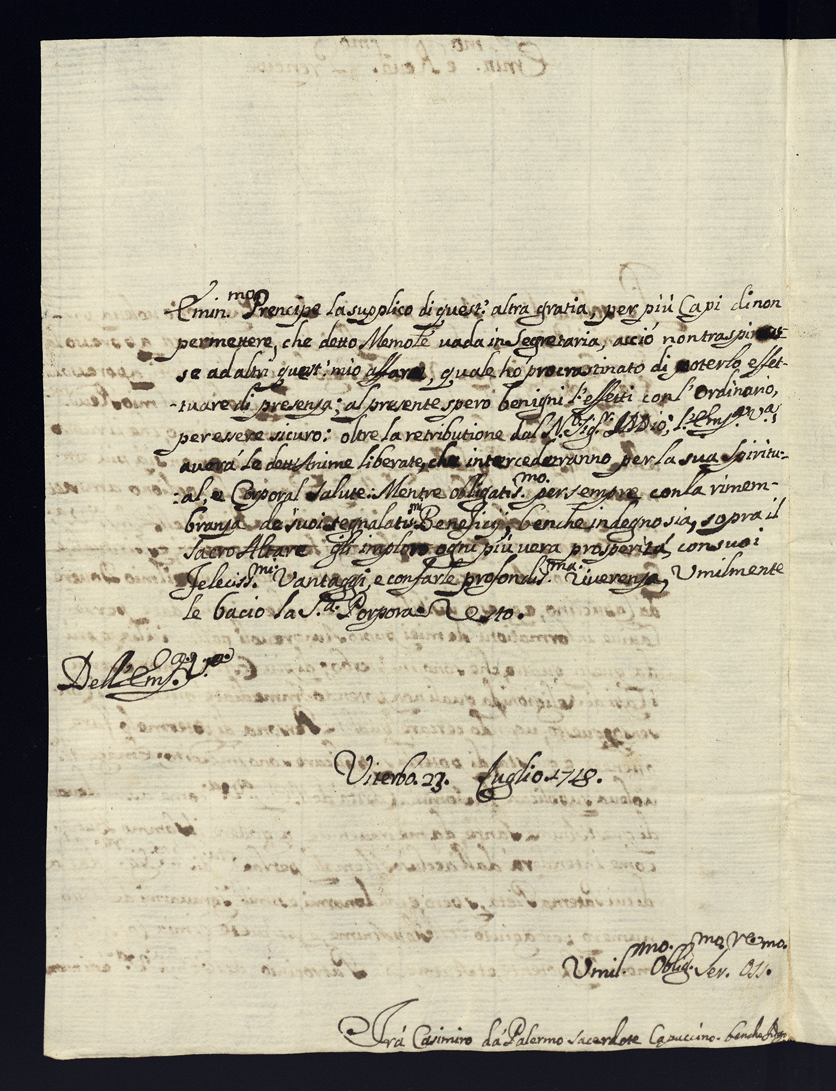 Emin.mo Prencipe la supplico di quest: altra gratia, per più Capi di non
permettere, che detto Memole vada in Segretaria, acciò non traspirasse
se ad altri quest: mio affare, quale ho procrastinato di poterlo effet-
-tuare di presenza; al presente spero benigni l'effetti con l'Ordinario,
per essere sicuro: oltre la retributione dal N. Sig.re IDDio; l'Em.za V.a
averà le dettissime liberate, che intercederanno per la sua Spiritu-
:al, e Corporal Salute: Mentre obligatis.mo per sempre con la rimem-
branza de suoi segnalatis.mi Beneficij, benche indegno sia, sopra il
Sacro Altare gli imploro ogni più vera prosperità, con suoi
Felicissi.mi Vantaggi, e confarle profondis.ma Riverenza, Umilmente
le bacio la S.a Porpora e Resto.
Dell'Em.za V.ra
Viterbo. 23. Luglio. 1748.
Umil.mo Oblig.mo Ser. Oss.
Frà Casimiro dà Palermo Sacerdote Capuccino. benche